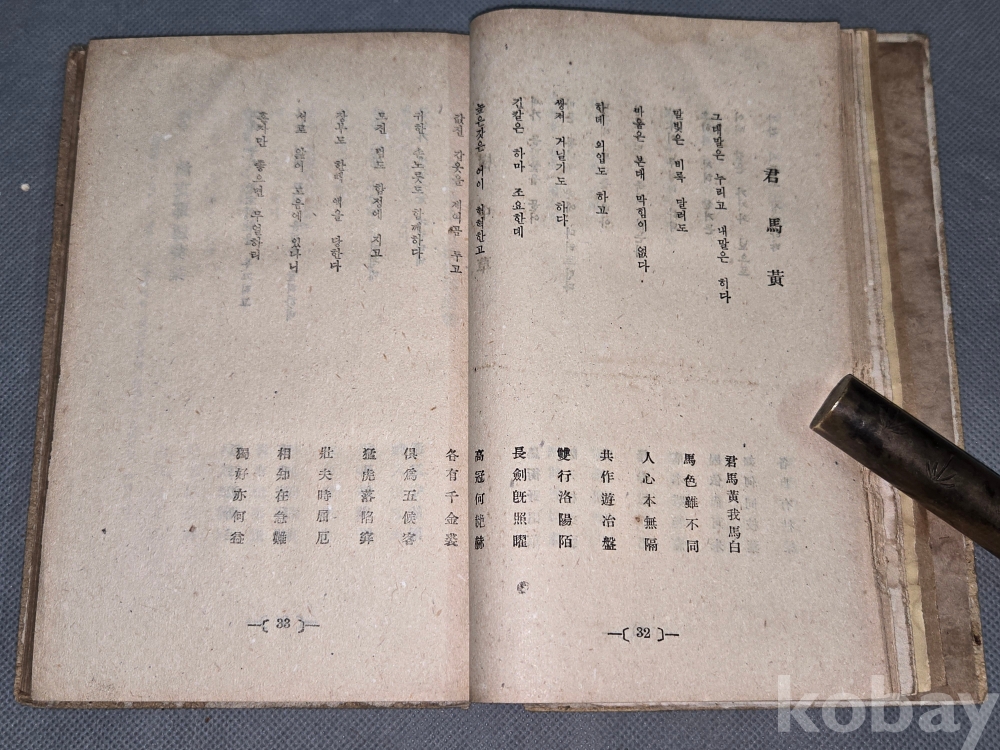 君馬黃
그대말은 누리고 내말은 히다
말빛은 비록 달러도
마음은 본대 막힘이 없다
한데 외입도 하고
쌍저 거닐기도 하다
긴칼은 하마 조요한데
높은갓은 어이 혁혁한고
값진 갑옷을 제여곰 두고
귀한 손노릇도 함께하다
모진 범도 함정에 지고
장부도 한때 액을 당한다
서로 앎이 있다니
혼자만 좋으면 무얼하리
君馬黃我馬白
馬色雖不同
人心本無隔
共作遊冶盤
雙行洛陽陌
長劍旣照曜
高冠何赩赫
各有千金裘
俱爲五候客
猛虎落陷穽
壯夫時屈厄
相知在急難
獨好亦何益
—〔 32 〕—
—〔 33 〕—
kobay